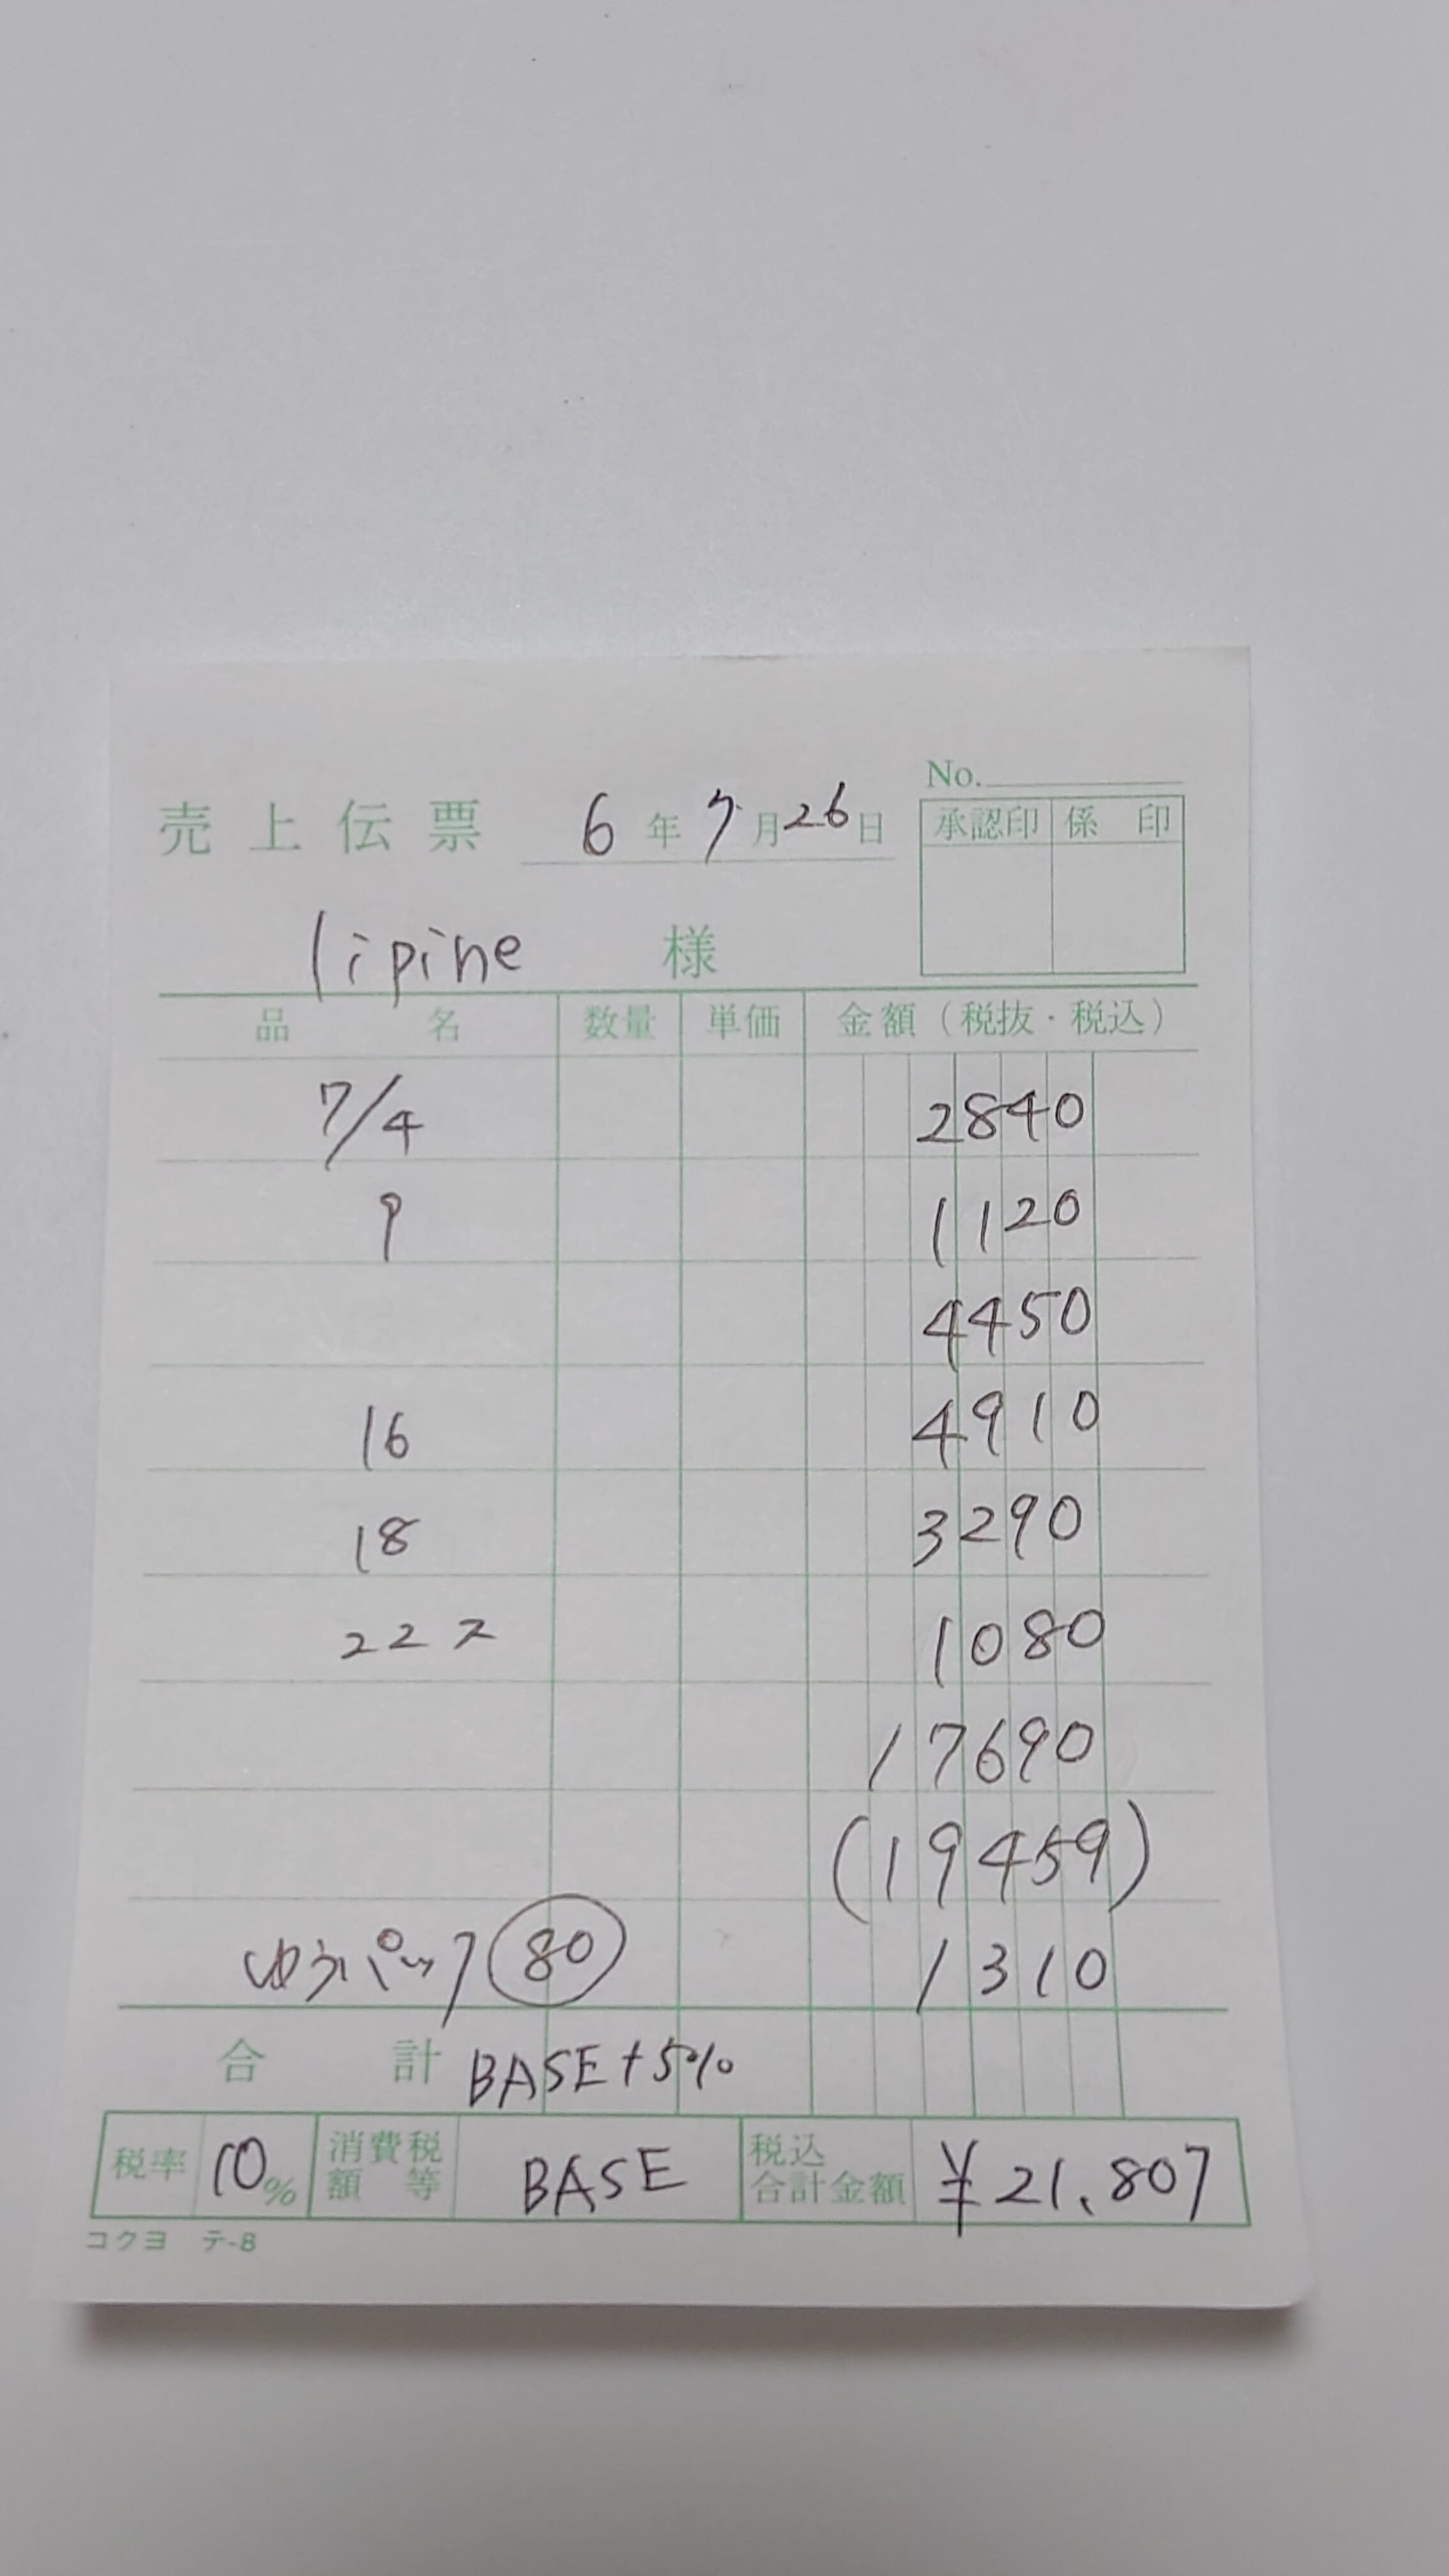 No.
売上伝票 6年7月26日
承認印 係印
lipine 様
品名 数量 単価 金額（税抜・税込）
7/4 2840
9 1120
4450
16 4910
18 3290
22 ス 1080
17690
(19459)
ゆうパック 80 1310
合計 BASE+5%
税率 10% 消費税額等 BASE 税込合計金額 ¥21,807
コクヨ テ-8